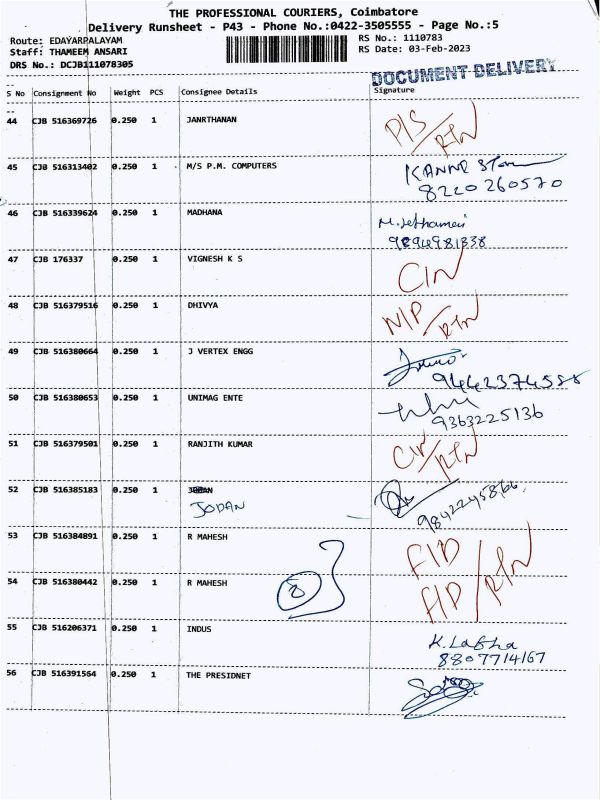 THE PROFESSIONAL COURIERS, Coimbatore
Delivery Runsheet - P43 - Phone No.:0422-3505555 - Page No.:5
Route: EDAYARPALAYAM RS No.: 1110783
Staff: THAMEEM ANSARI RS Date: 03-Feb-2023
DRS No.: DCJB111078305
DOCUMENT DELIVERY
S No Consignment No Weight PCS Consignee Details Signature
44 CJB 516369726 0.250 1 JANRTHANAN P/S/RTN
45 CJB 516313402 0.250 1 M/S P.M. COMPUTERS KANNE
8220260570
46 CJB 516339624 0.250 1 MADHANA
9894981338
47 CJB 176337 0.250 1 VIGNESH K S CIN
48 CJB 516379516 0.250 1 DHIVYA N/P/RTN
49 CJB 516380664 0.250 1 J VERTEX ENGG
9442374558
50 CJB 516380653 0.250 1 UNIMAG ENTE
9363225136
51 CJB 516379501 0.250 1 RANJITH KUMAR CIN/RTN
52 CJB 516385183 0.250 1
JODAN 9842245866
53 CJB 516384891 0.250 1 R MAHESH F/D
54 CJB 516380442 0.250 1 R MAHESH 8 F/D/RTN
55 CJB 516206371 0.250 1 INDUS K. Labha
8807714167
56 CJB 516391564 0.250 1 THE PRESIDNET